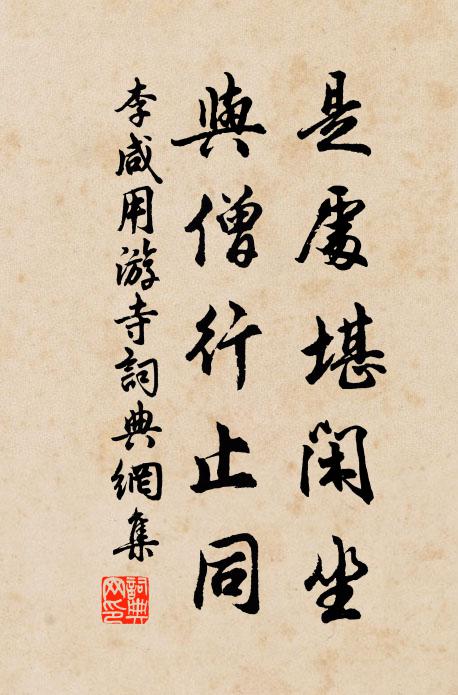 是處堪閑坐
與僧行止同
李咸用游寺詞典網集
詞典網印